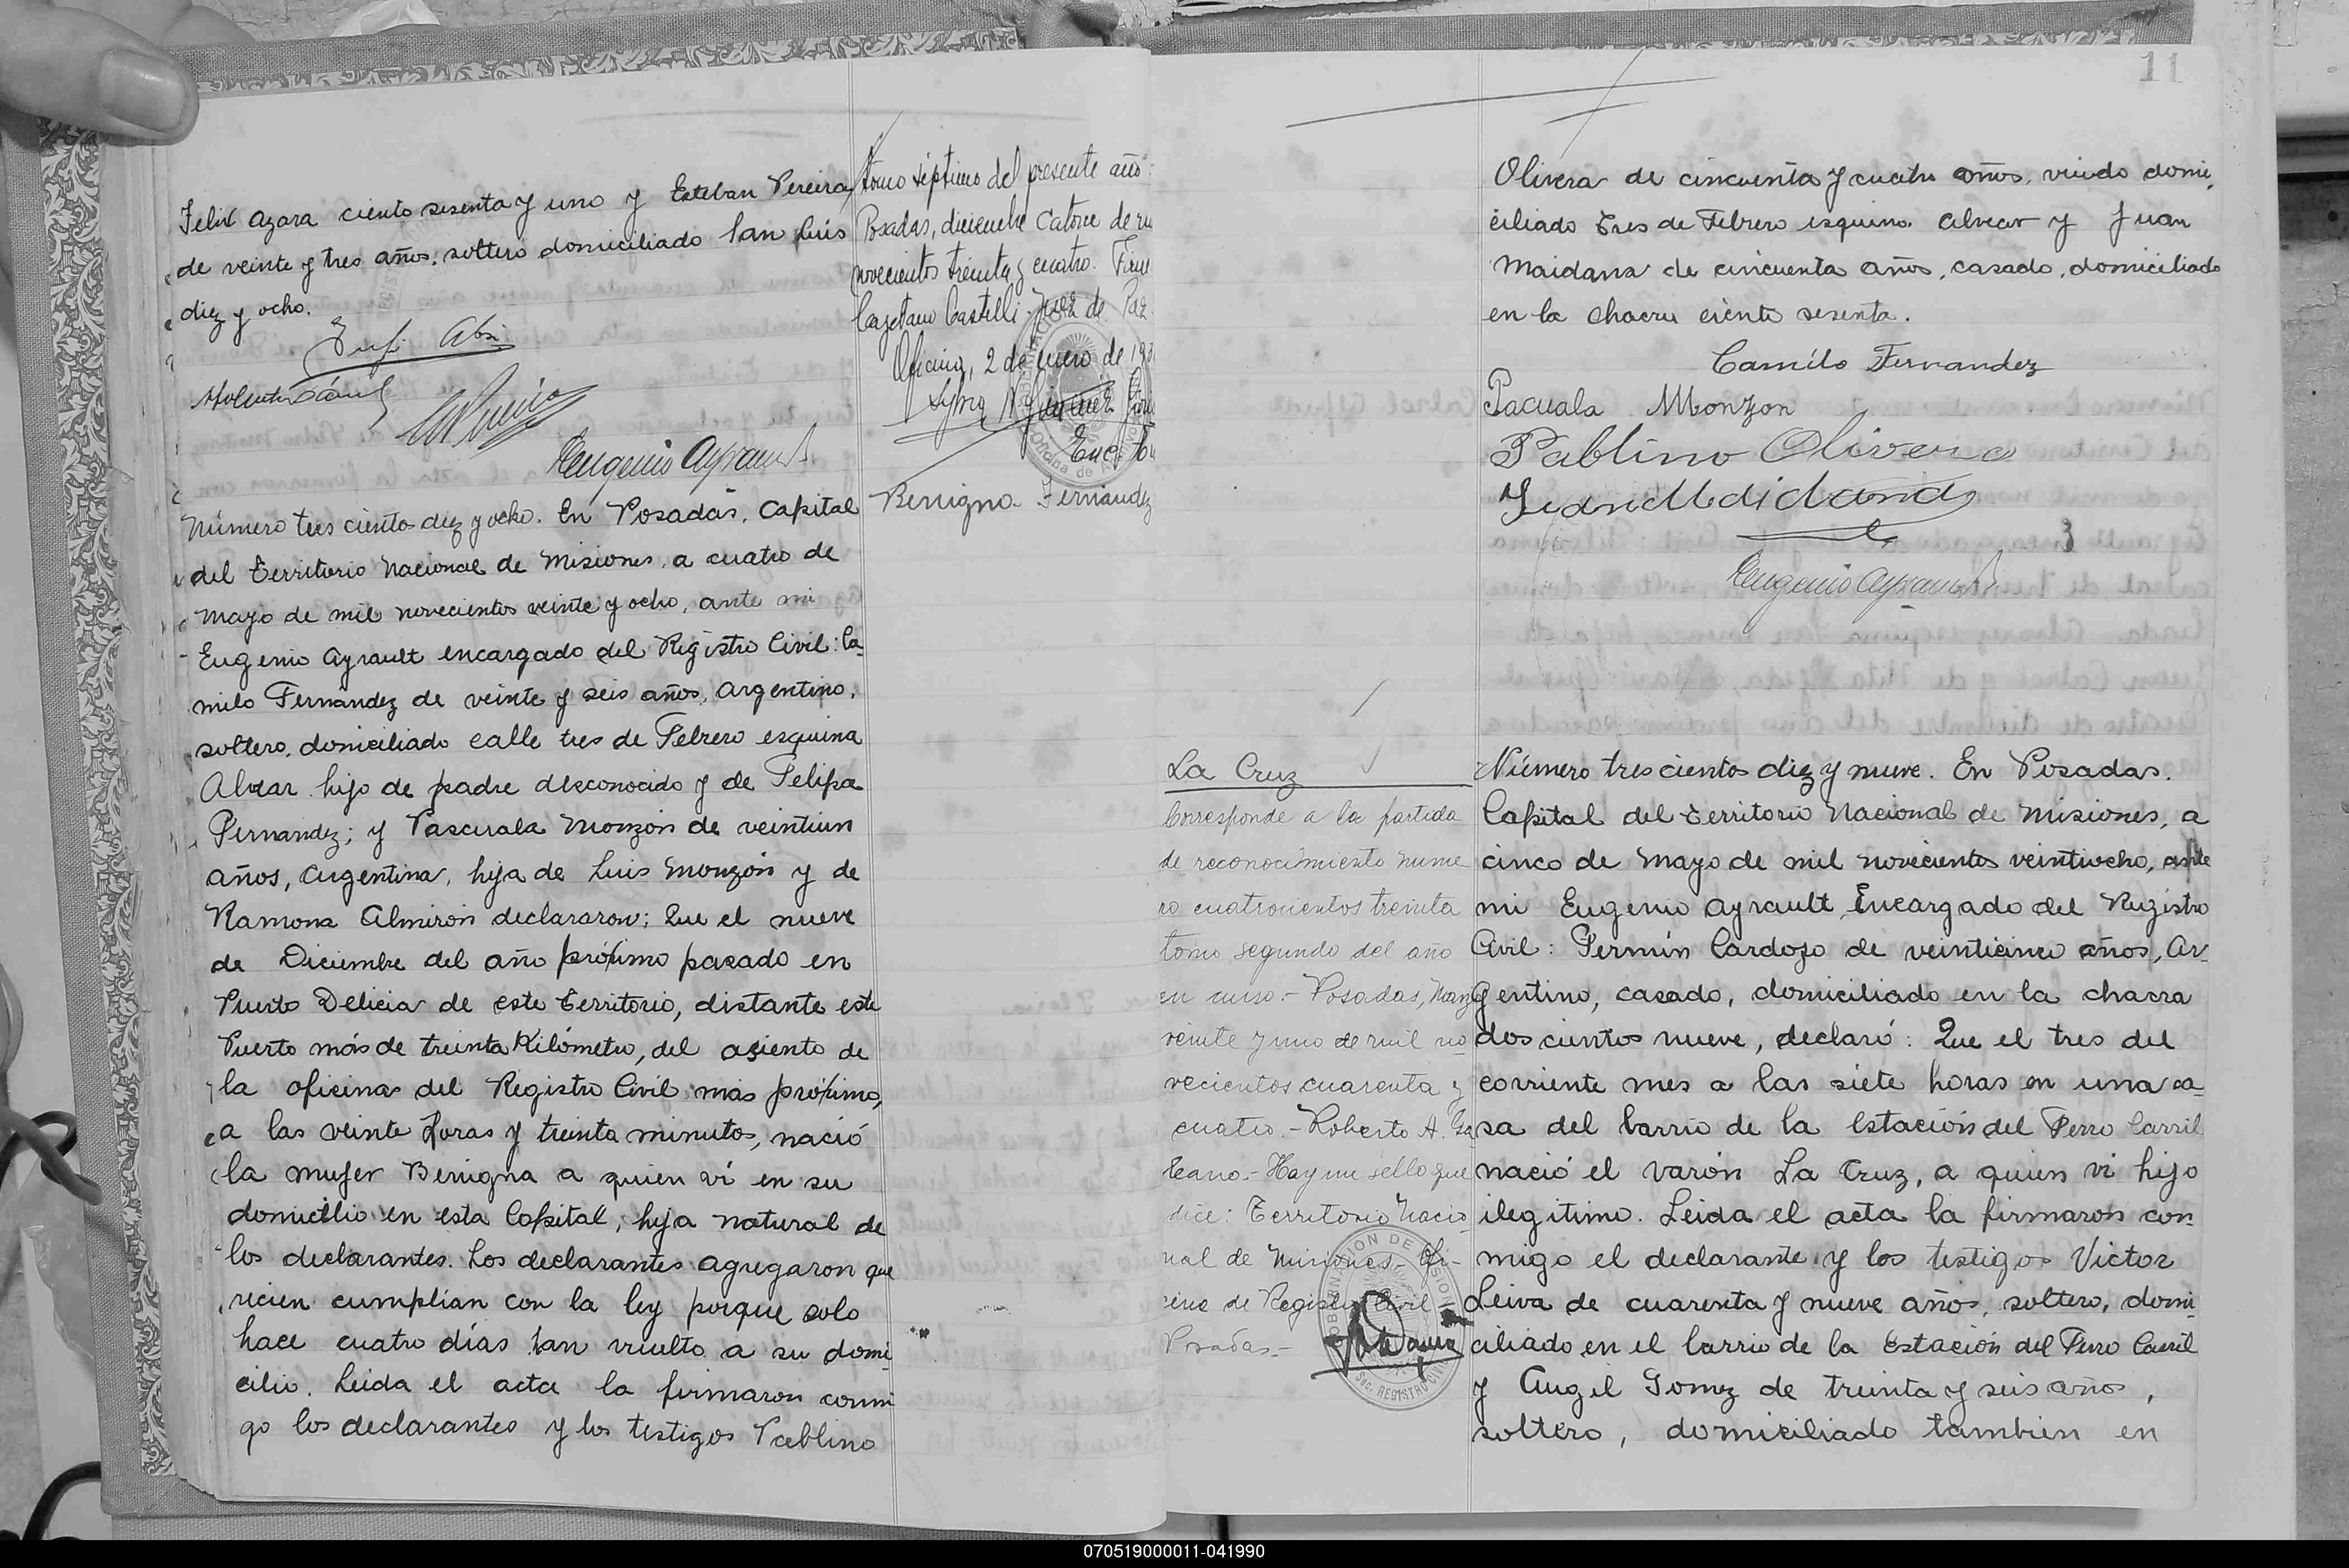 Felix Azara ciento sesenta y uno y Esteban Pereira
de veinte y tres años, soltero domiciliado San Luis
diez y ocho.
Eugenio Ayrault
tomo séptimo del presente año:
Posadas, diciembre catorce de
novecientos treinta y cuatro.
Cayetano Castelli - Juez de Paz.
Oficina, 2 de enero de
Número tres ciento diez y ocho. En Posadas, Capital
del Territorio Nacional de Misiones, a cuatro de
Mayo de mil novecientos veinte y ocho, ante mi
Eugenio Ayrault encargado del Registro Civil: Ca-
milo Fernandez de veinte y seis años, argentino,
soltero, domiciliado calle tres de Febrero esquina
Alvear hijo de padre desconocido y de Felipa
Fernandez; y Pascuala Monzón de veintiun
años, Argentina, hija de Luis Monzón y de
Ramona Almirón declararon; Que el nueve
de Diciembre del año próximo pasado en
Puerto Delicia de este Territorio, distante este
Puerto más de treinta Kilómetro, del asiento de
la oficina del Registro Civil mas próximo,
a las veinte horas y treinta minutos, nació
la mujer Benigna a quien ví en su
domicilio en esta Capital, hija natural de
los declarantes. Los declarantes agregaron que
recien cumplian con la ley porque solo
hace cuatro días han vuelto a su domi
cilio. Leida el acta la firmaron conmi
go los declarantes y los testigos Pablino
Benigna Fernandez
11
Olivera de cincuenta y cuatro años, viudo domi,
ciliado Tres de Febrero esquina Alvear y Juan
Maidana de cincuenta años, casado, domiciliado
en la chacra ciento sesenta.
Camilo Fernandez
Pacuala Monzon
Pablino Olivera
Eugenio Ayrault
La Cruz
Corresponde a la partida
de reconocimiento nume
ro cuatrocientos treinta
tomo segundo del año
en curso.- Posadas, Marzo
veinte y uno de mil no
vecientos cuarenta y
cuatro.- Roberto A.
Hay un sello que
dice: Territorio Nacio
nal de Misiones - Ofi-
cina de Registro Civil
Posadas.-
Número tres cientos diez y nueve. En Posadas.
Capital del Territorio Nacional de Misiones, a
cinco de Mayo de mil novecientos veintiocho, ante
mi Eugenio Ayrault, Encargado del Registro
Civil: Fermín Cardozo de veinticinco años, Ar-
gentino, casado, domiciliado en la chacra
dos cientos nueve, declaró: Que el tres del
corriente mes a las siete horas en una ca-
sa del barrio de la Estación del Ferro Carril
nació el varón La Cruz, a quien vi hijo
ilegitimo. Leida el acta la firmaron con-
migo el declarante y los testigos Victor
Leiva de cuarenta y nueve años, soltero, domi-
ciliado en el barrio de la Estación del Ferro Carril
y Angel Gomez de treinta y seis años,
soltero, domiciliado tambien en
070519000011-041990